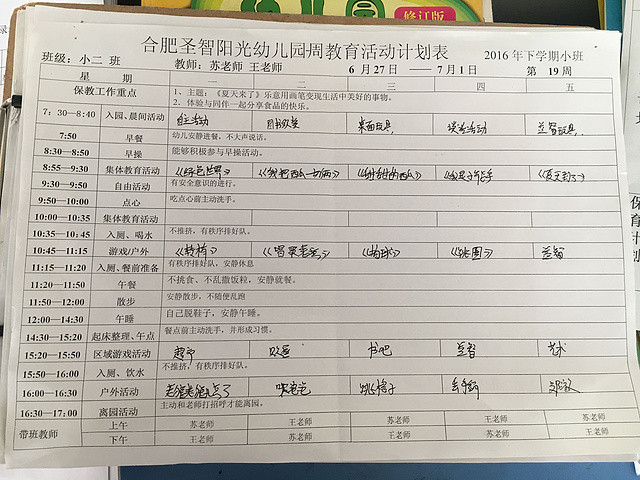 修订版
合肥圣智阳光幼儿园周教育活动计划表
2016年下学期小班
班级：小二 班 教师：苏老师 王老师 6月27日——7月1日 第19周
星期 一 二 三 四 五
保教工作重点 1、主题：《夏天来了》乐意用画笔变现生活中美好的事物。
2、体验与同伴一起分享食品的快乐。
7：30—8:40 入园、晨间活动 自主活动 图书欣赏 桌面玩具 益智玩具
7:50 早餐 幼儿安静进餐，不大声说话。
8:30—8:50 早操 能够积极参与早操活动。
8:55—9:30 集体教育活动 《绿色世界》 《夏天到了》
9:30—9:50 自由活动 有安全意识的进行。
9:50—10:00 点心 吃点心前主动洗手。
10:00—10:35 集体教育活动
10:35—10:45 入厕、喝水 不推挤，有秩序排好队。
10:45—11:15 游戏/户外 《拍球》 益智
11:15—11:20 入厕、餐前准备 有秩序排好队，安静休息
11:20—11:50 午餐 不挑食、不乱撒饭粒，安静就餐。
11:50—12:00 散步 安静散步，不随便乱跑
12:00—14:30 午睡 自己脱鞋子，安静午睡。
14:30—15:20 起床整理、午点 餐点前主动洗手，并形成习惯。
15:20—15:50 区域游戏活动 超市 书吧 益智 艺术
15:50—16:00 入厕、饮水 不推挤，有秩序排好队。
16:00—16:30 户外活动 跳格子
16:30—17:00 离园活动 主动和老师打招呼才能离园。
带班教师 上午 苏老师 王老师 苏老师 王老师 苏老师
下午 王老师 苏老师 王老师 苏老师 王老师